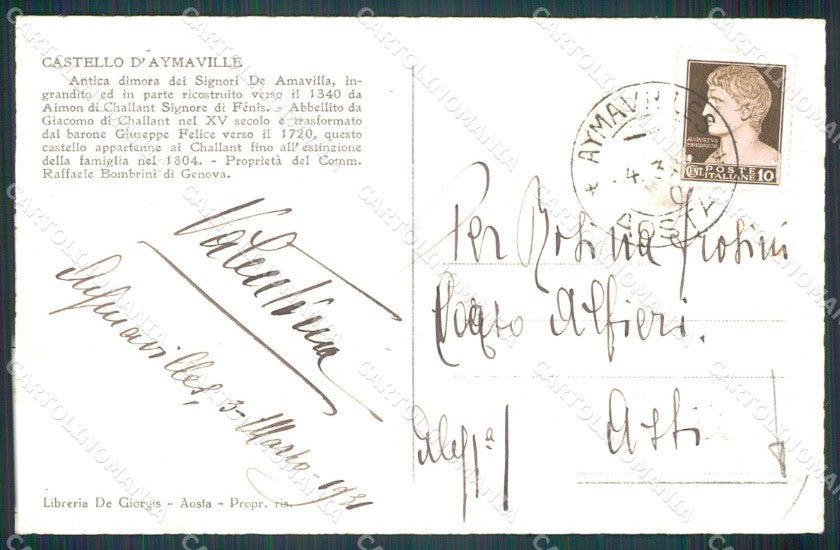 CASTELLO D'AYMAVILLE
Antica dimora dei Signori De Amavilla, in-
grandito ed in parte ricostruito verso il 1340 da
Aimon di Challant Signore di Fénis. - Abbellito da
Giacomo di Challant nel XV secolo e trasformato
dal barone Giuseppe Felice verso il 1720, questo
castello appartenne ai Challant fino all'estinzione
della famiglia nel 1804. - Proprietà del Comm.
Raffaele Bombrini di Genova.
Valentina
Aymavilles, 3 - Marzo - 1931
Libreria De Giorgis - Aosta - Propr. ris.
AYMAVILLES
AOSTA
AVGVSTVS
IMPERATOR
POSTE
CENT. ITALIANE 10
Per Rosina Frosini
Corso Alfieri.
Asti
CARTOLINOMANIA